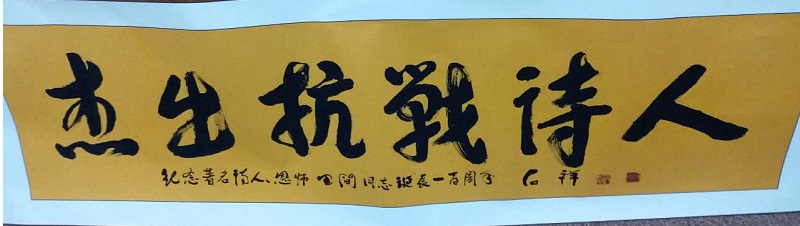 杰出抗戰诗人
纪念著名诗人、恩师田间同志诞辰一百周年 石祥